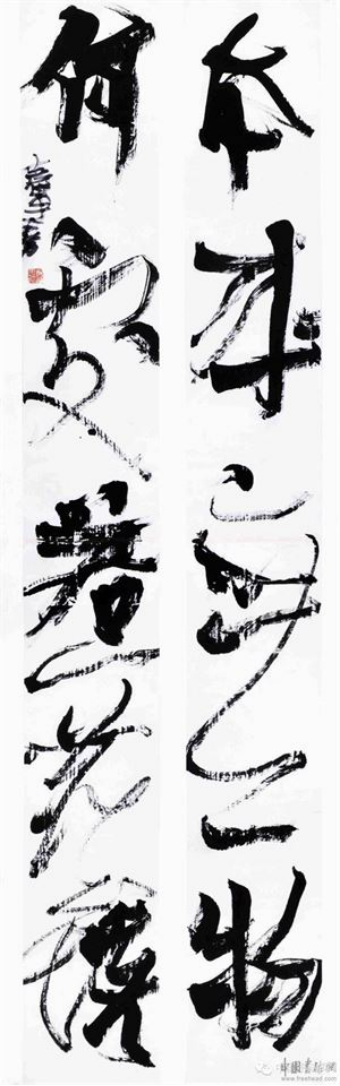 本来無一物
何處惹塵埃
中国书法网
www.freehead.com